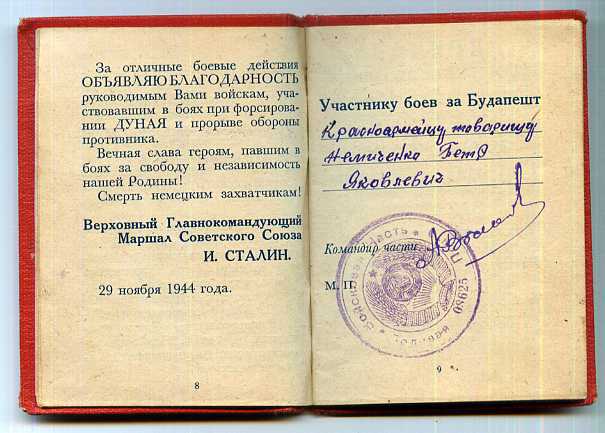 За отличные боевые действия
ОБЪЯВЛЯЮ БЛАГОДАРНОСТЬ
руководимым Вами войскам, уча-
ствовавшим в боях при форсирова-
нии ДУНАЯ и прорыве обороны
противника.
Вечная слава героям, павшим в
боях за свободу и независимость
нашей Родины!
Смерть немецким захватчикам!
Верховный Главнокомандующий
Маршал Советского Союза
И. СТАЛИН.
29 ноября 1944 года.
8
Участнику боев за Будапешт
Красноармейцу товарищу
Немиченко Петя
Яковлевич
Командир части
М. П.
Войсковая часть
Полевая
08625
9